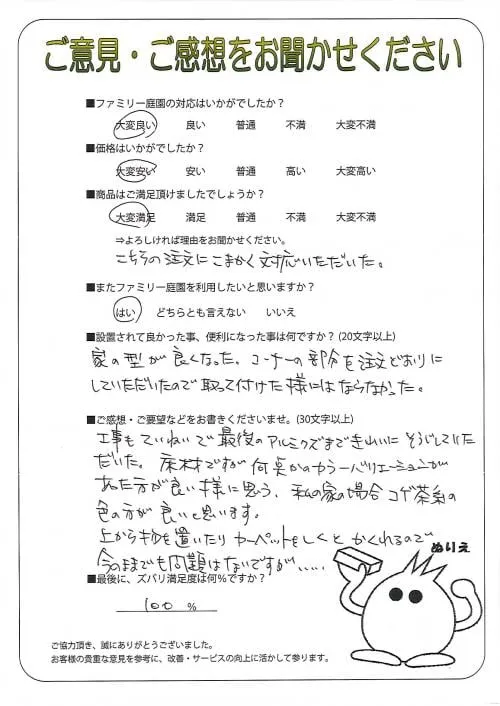 ご意見・ご感想をお聞かせください
■ファミリー庭園の対応はいかがでしたか？
大変良い 良い 普通 不満 大変不満
■価格はいかがでしたか？
大変安い 安い 普通 高い 大変高い
■商品はご満足頂けましたでしょうか？
大変満足 満足 普通 不満 大変不満
⇒よろしければ理由をお聞かせください。
こちらの注文にこまかく対応いただいた。
■またファミリー庭園を利用したいと思いますか？
はい どちらとも言えない いいえ
■設置されて良かった事、便利になった事は何ですか？(20文字以上)
家の型が良くなった。コーナーの部分を注文どおりに
していただいたので取って付けた様にはならなかった。
■ご感想・ご要望などをお書きくださいませ。(30文字以上)
工事もていねいで最後のアルミクズまできれいにそうじしていた
だいた。床材ですが何点かのカラーバリエーションが
あった方が良い様に思う、私の家の場合コゲ茶系の
色の方が良いと思います。
上から物を置いたりカーペットをしくとかくれるので
今のままでも問題はないですが、....
ぬりえ
■最後に、ズバリ満足度は何％ですか？
100 %
ご協力頂き、誠にありがとうございました。
お客様の貴重な意見を参考に、改善・サービスの向上に活かして参ります。